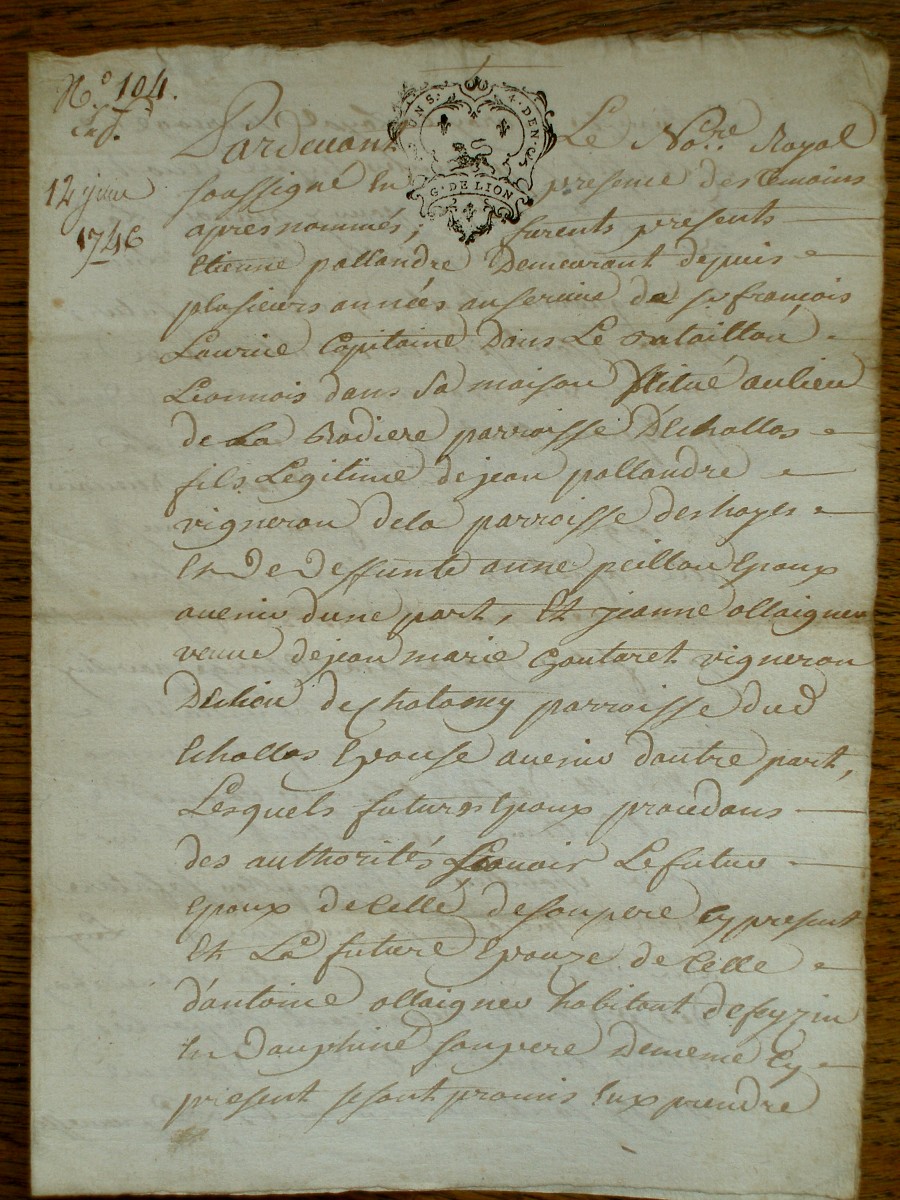 N.° 104.
12 juin
1746
UNS. 4. DEN. G. DE LION
Pardevant Le No.re Royal
soussigné En presence des temoins
apres nommés, furents presents
Etienne pallandre Demeurant depuis
plusieurs années au service de sr françois
Laurice Capitaine Dans Le Bataillon
Lionnois dans Sa maison Située au lieu
de La Rodiere parroisse D'Echallas
fils Legitime de jean pallandre
vigneron de la parroisse des hayes
Et De Deffunte anne peillon Epoux
avenir dune part, Et jeanne ollaignier
veuve de jean marie Goutaret vigneron
Du lieu de Chatamy parroisse dud
Echallas Epouse avenir dautre part,
Lesquels futurs Epoux procedans
des authorités Scavoir Le futur
Epoux de Celle de son pere Cy present
Et La future Epouze de Celle
d'antoine ollaignier habitant de feyzin
En Dauphiné son pere De meme Cy
present se sont promis Eux prendre